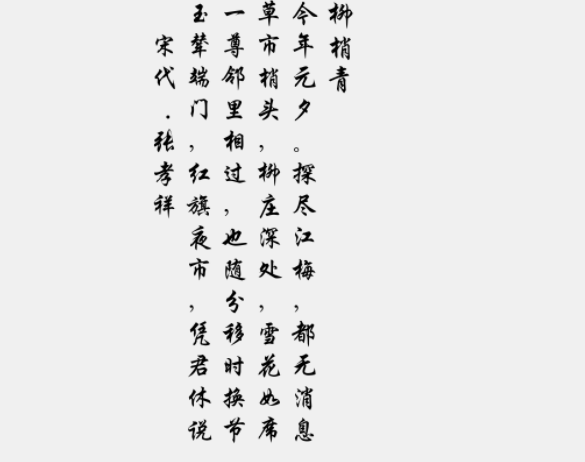 柳梢青
今年元夕。探尽江梅，都无消息
草市梢头，柳庄深处，雪花如席
一尊邻里相过，也随分移时换节
玉辇端门，红旗夜市，凭君休说
宋代．张孝祥